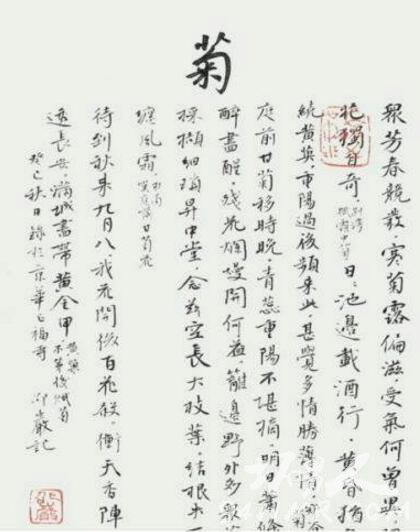 菊
眾芳春競發，寒菊露偏滋，受氣何曾異
花獨自奇 日日池邊載酒行，黃昏猶
繞黃英，重陽過後頻來此，甚覺多情勝薄情
庭前甘菊移時晚，青蕊重陽不堪摘，明日蕭條
醉盡醒，殘花爛熳開何益，籬邊野外多眾
採擷細瑣昇中堂，念茲空長大枝葉，結根失
纏風霜 杜甫 庭前甘菊花
待到秋來九月八，我花開後百花殺，衝天香陣
透長安，滿城盡帶黃金甲 黃巢 不第後賦菊
癸巳秋日錄於京華百福 記